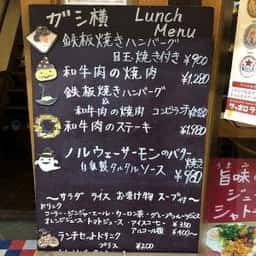 ガシ横 Lunch Menu
鉄板焼きハンバーグ
目玉焼き付き ¥900
和牛肉の焼肉 ¥1,280
鉄板焼きハンバーグ
&
和牛肉の焼肉 コンビランチ
和牛肉のステーキ ¥1,980
ノルウェーサーモンのバター焼き
自家製タルタルソース ¥980
〜サラダ ライス お漬け物 スープ付〜
ドリンク
コーラ・ジンジャーエール・ウーロン茶・グレープフルーツジュース
オレンジジュース トマトジュース アイスコーヒー ¥350
アルコール類 ¥400〜
ランチセットドリンク
プラス ¥200
旨味の
ジュ
シャト